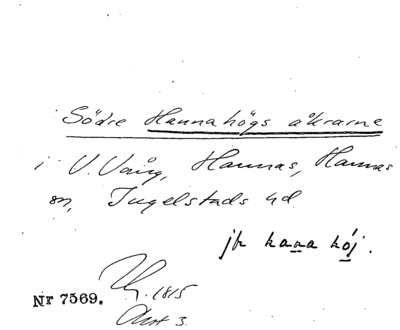 Södre Hannahögs åkrarne
i V. Vång, Hannas, Hannas
sn, Ingelstads hd.
jfr hana hój.
Nr 7569.
1815
Akt 3.